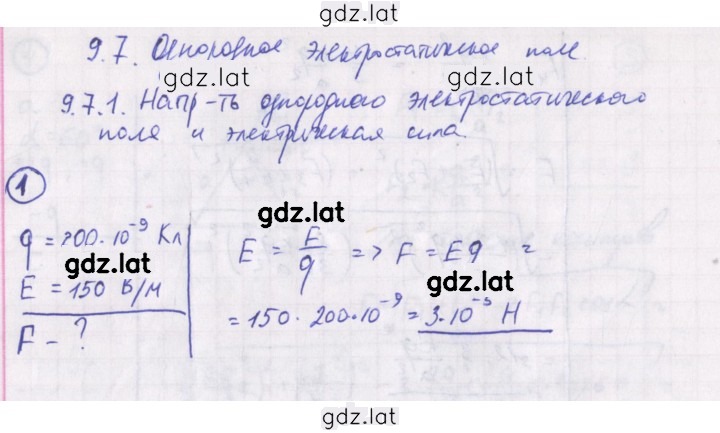 gdz.lat
9.7. Однородное электростатическое поле.
gdz.lat gdz.lat
9.7.1. Напр-ть однородного электростатического
поля и электрическая сила.
1
gdz.lat
q = 200·10⁻⁹ Кл
gdz.lat
E = 150 В/м
F - ?
E = F/q => F = Eq =
gdz.lat
= 150·200·10⁻⁹ = 3·10⁻⁵ Н
gdz.lat